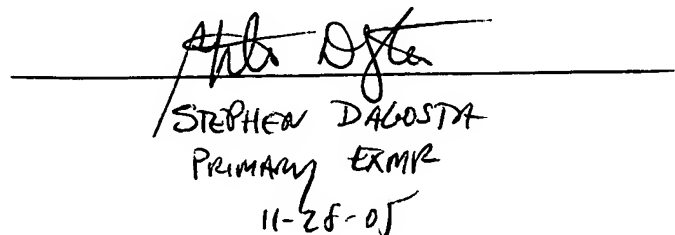 STEPHEN DAGOSTA
PRIMARY EXMR
11-28-05